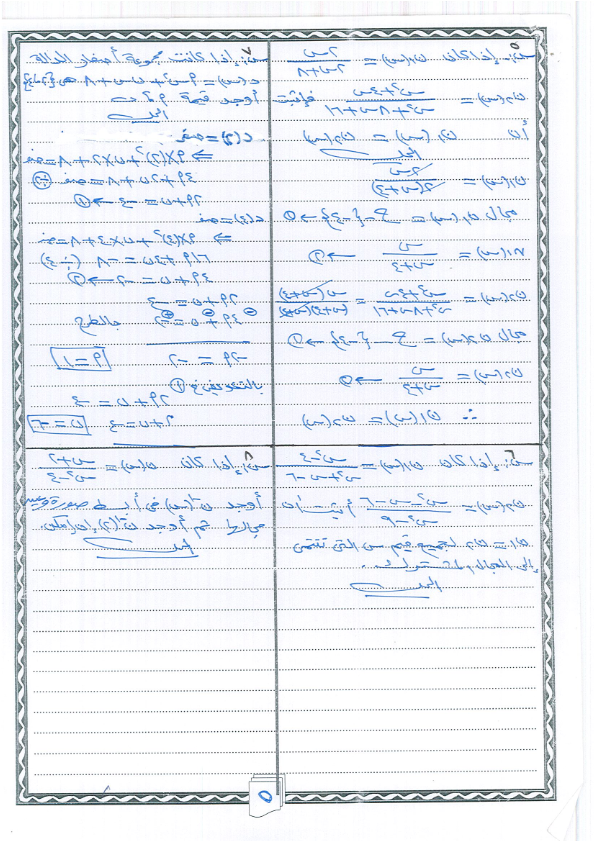 ٥
س: إذا كان ن١(س) = ٢س / ٢س + ٨
ن٢(س) = س٢ + ٤س / س٢ + ٨س + ١٦ فإثبت
أن ن١(س) = ن٢(س)
الحل
ن١(س) = ٢س / ٢(س + ٤)
مجال ن١(س) = ح - {-٤} ← ①
ن١(س) = س / س + ٤ ← ②
ن٢(س) = س٢ + ٤س / س٢ + ٨س + ١٦ = س(س + ٤) / (س + ٤)(س + ٤)
مجال ن٢(س) = ح - {-٤} ← ①
ن٢(س) = س / س + ٤ ← ②
∴ ن١(س) = ن٢(س)
٧
س: إذا كانت مجموعة أصفار الدالة
د(س) = ٩س٢ + ن س + ٨ هي {٢،٤}
أوجد قيمة ٩، ن
الحل
د(٢) = صفر
⇐ ٩×(٢)٢ + ن×٢ + ٨ = صفر
٤٩ + ٢ن + ٨ = صفر (÷٢)
٢٩ + ن = -٤ ← ①
د(٤) = صفر
⇐ ٩×(٤)٢ + ن×٤ + ٨ = صفر
١٦٩ + ٤ن = -٨ (÷٤)
٤٩ + ن = -٢ ← ②
٢٩ + ن = -٤
٤٩ + ن = -٢ بالطرح
-٢٩ = -٢ ٩ = ١
بالتعويض في ①
٢٩ + ن = -٤
٢ + ن = -٤ ن = -٦
٦
س: إذا كان ن١(س) = س٢ - ٤ / س٢ + س - ٦
ن٢(س) = س٢ - س - ٦ / س٢ - ٩ أثبت أن
ن١ = ن٢ لجميع قيم س التى تنتمى
إلى المجال المشترك.
الحل
٨
س: إذا كان ن(س) = س + ٢ / س٢ - ٤
أوجد ن(س) فى أبسط صورة
مجالها ثم أوجد ن(٢) إن أمكن
الحل
٥